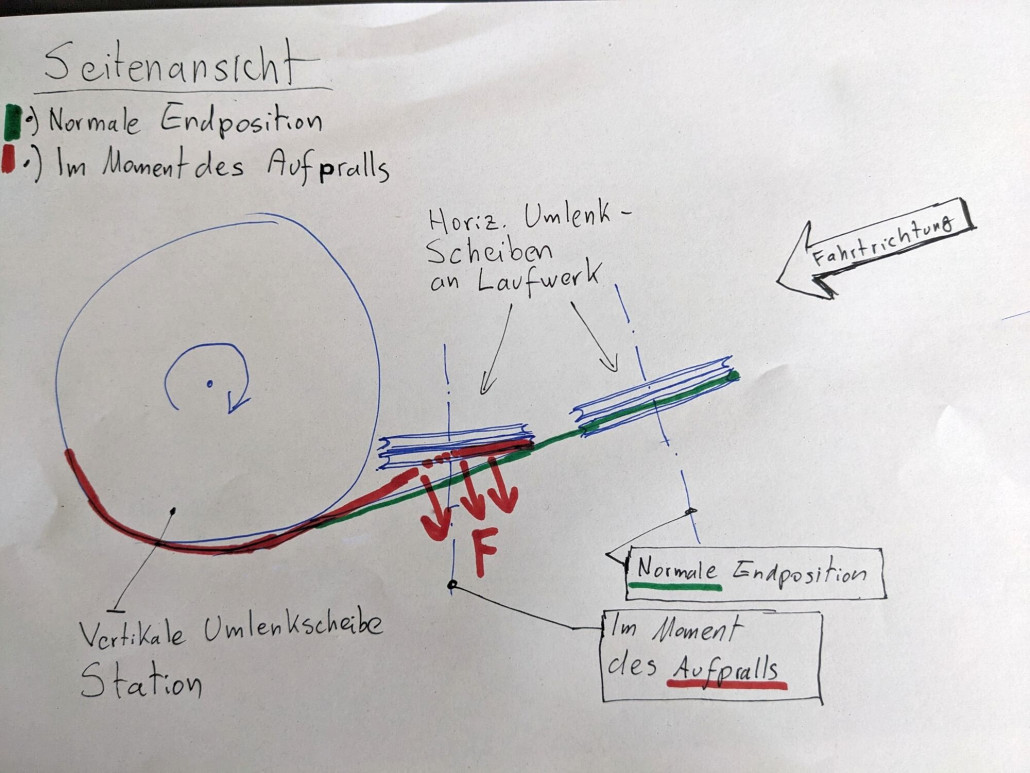 Seitenansicht
•) Normale Endposition
•) Im Moment des Aufpralls
Horiz. Umlenk-
Scheiben
an Laufwerk
Fahrtrichtung
F
Normale Endposition
Im Moment
des Aufpralls
Vertikale Umlenkscheibe
Station